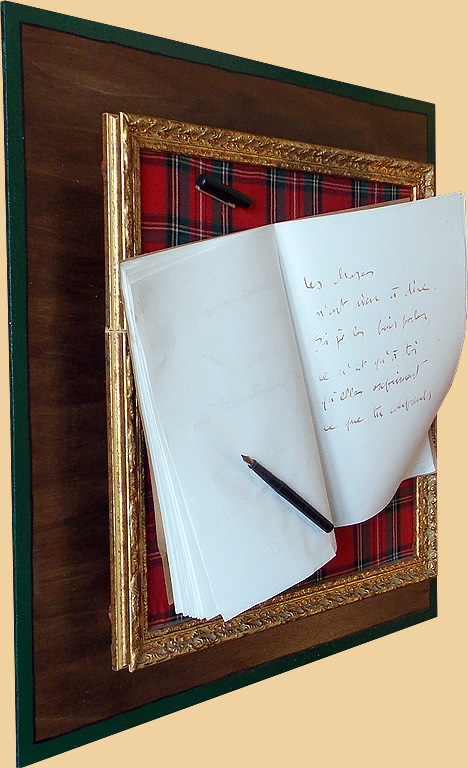 les choses
n'ont rien à dire.
Si je les fais parler,
ce n'est qu'à toi
qu'elles expriment
ce que tu comprends